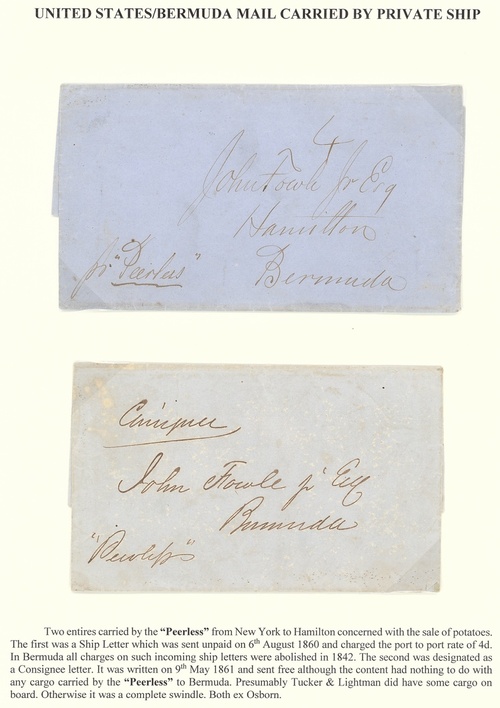 UNITED STATES/BERMUDA MAIL CARRIED BY PRIVATE SHIP
4
John Fowle Jr Esq
Hamilton
pr "Peerless"
Bermuda
Consignee
John Fowle jr Esq
Bermuda
"Peerless"
Two entires carried by the “Peerless” from New York to Hamilton concerned with the sale of potatoes.
The first was a Ship Letter which was sent unpaid on 6th August 1860 and charged the port to port rate of 4d.
In Bermuda all charges on such incoming ship letters were abolished in 1842. The second was designated as
a Consignee letter. It was written on 9th May 1861 and sent free although the content had nothing to do with
any cargo carried by the “Peerless” to Bermuda. Presumably Tucker & Lightman did have some cargo on
board. Otherwise it was a complete swindle. Both ex Osborn.